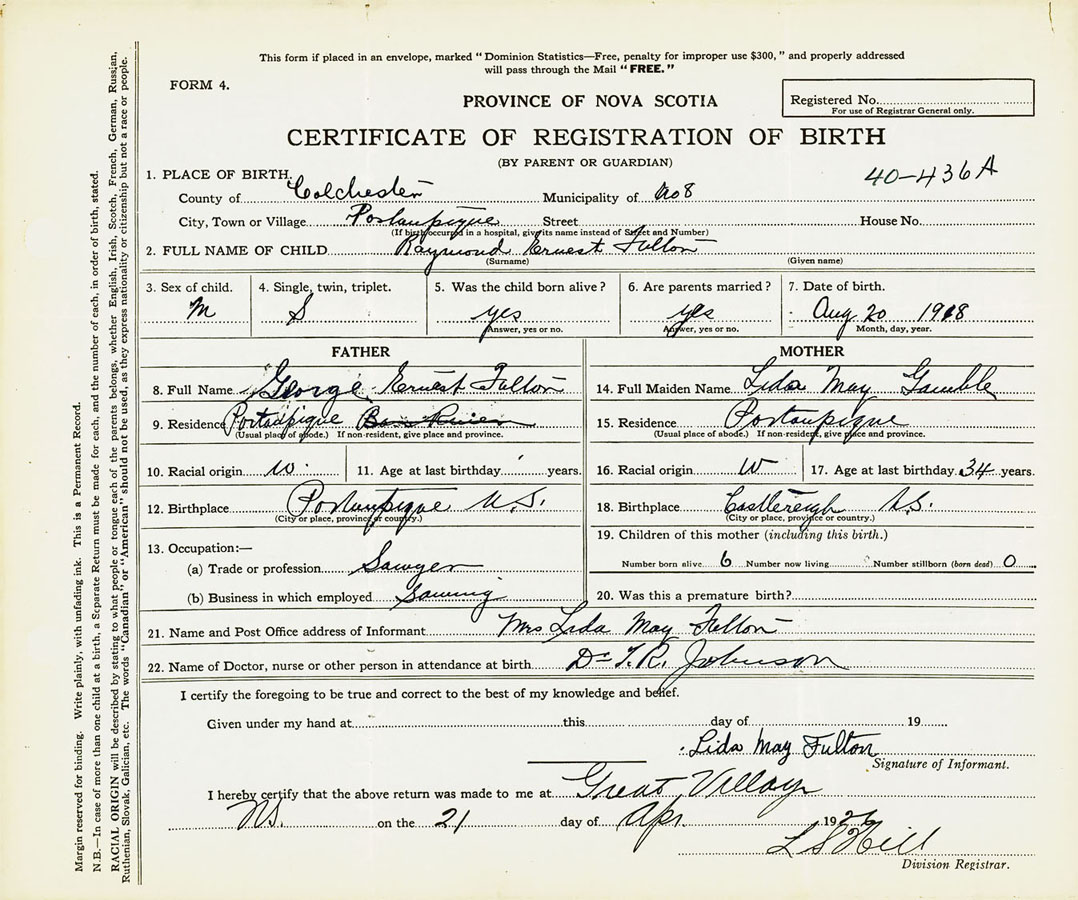 This form if placed in an envelope, marked "Dominion Statistics—Free, penalty for improper use $300," and properly addressed
will pass through the Mail "FREE."
FORM 4.
PROVINCE OF NOVA SCOTIA
Registered No.
For use of Registrar General only.
CERTIFICATE OF REGISTRATION OF BIRTH
(BY PARENT OR GUARDIAN)
40-436A
1. PLACE OF BIRTH.
County of Colchester Municipality of
City, Town or Village Portaupique Street House No.
(If birth occurred in a hospital, give its name instead of Street and Number)
2. FULL NAME OF CHILD Raymond Ernest Fulton
(Surname) (Given name)
3. Sex of child. 4. Single, twin, triplet. 5. Was the child born alive? 6. Are parents married? 7. Date of birth.
M S yes yes Aug 20 1918
Answer, yes or no. Answer, yes or no. Month, day, year.
FATHER MOTHER
8. Full Name George Ernest Fulton 14. Full Maiden Name Lida May Gamble
9. Residence Portaupique 15. Residence Portaupique
(Usual place of abode.) If non-resident, give place and province. (Usual place of abode.) If non-resident, give place and province.
10. Racial origin W. 11. Age at last birthday years. 16. Racial origin W 17. Age at last birthday 34 years.
12. Birthplace Portaupique N.S. 18. Birthplace Castlereigh N.S.
(City or place, province or country.) (City or place, province or country.)
13. Occupation:— 19. Children of this mother (including this birth.)
(a) Trade or profession Sawyer Number born alive 6 Number now living Number stillborn (born dead) 0
(b) Business in which employed Sawing 20. Was this a premature birth?
21. Name and Post Office address of Informant Mrs Lida May Fulton
22. Name of Doctor, nurse or other person in attendance at birth Dr T. R. Johnson
I certify the foregoing to be true and correct to the best of my knowledge and belief.
Given under my hand at this day of 19
Lida May Fulton
Signature of Informant.
I hereby certify that the above return was made to me at Great Village
NS. on the 21 day of Apr. 1926
L S Hill
Division Registrar.
Margin reserved for binding. Write plainly, with unfading ink. This is a Permanent Record.
N.B.—In case of more than one child at a birth, a Separate Return must be made for each, and the number of each, in order of birth, stated.
RACIAL ORIGIN will be described by stating to what people or tongue each of the parents belongs, whether English, Irish, Scotch, French, German, Russian,
Ruthenian, Slovak, Galician, etc. The words "Canadian" or "American" should not be used, as they express nationality or citizenship but not a race or people.